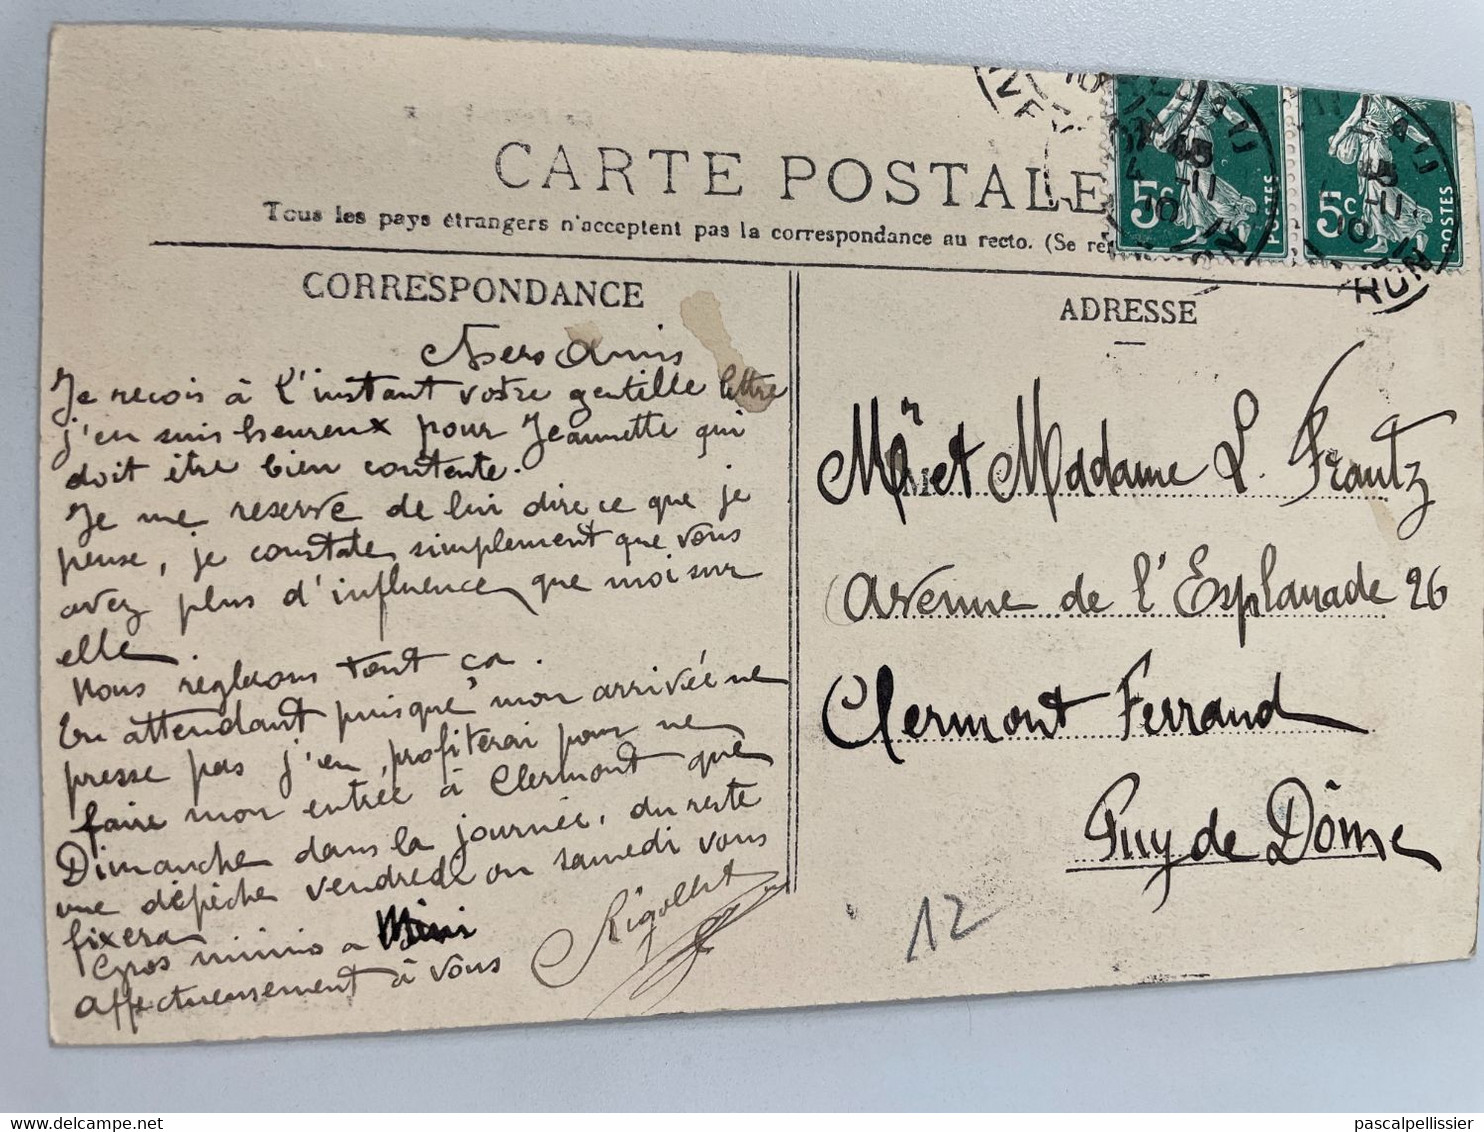 CARTE POSTALE
Tous les pays étrangers n'acceptent pas la correspondance au recto. (Se re
CORRESPONDANCE
Chers Amis
Je reçois à l'instant votre gentille lettre
j'en suis heureux pour Jeannette qui
doit être bien contente.
Je me reserve de lui dire ce que je
pense, je constate simplement que vous
avez plus d'influence que moi sur
elle.
Nous réglerons tout ça.
En attendant puisque mon arrivée ne
presse pas j'en profiterai pour ne
faire mon entrée à Clermont que
Dimanche dans la journée, du reste
une dépêche vendredi ou samedi vous
fixera
Gros mimis a Mini
affectueusement à vous
Rigollet
ADRESSE
Mr et Madame L. Frantz
Avenue de l'Esplanade 26
Clermont Ferrand
Puy de Dôme
12
5c
POSTES
5c
POSTES
pascalpellissier